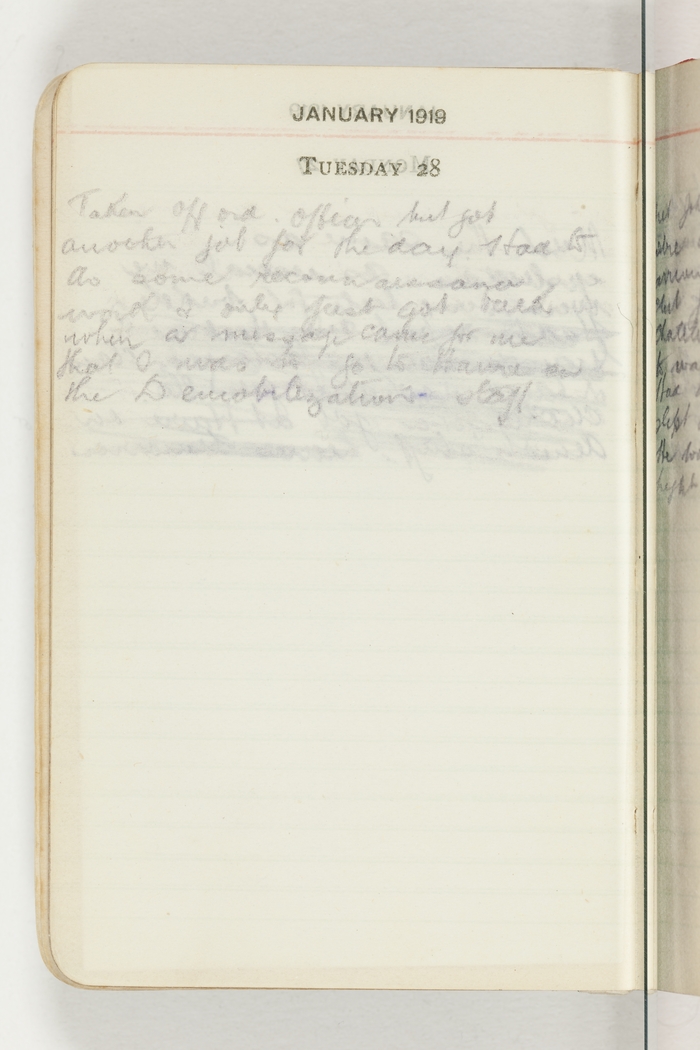 JANUARY 1919
TUESDAY 28
Taken off ord. officer but got
another job for the day. Had to
do some reconnaissance
work & only just got back
when a message came for me
that I was to go to Havre on
the Demobilization Staff